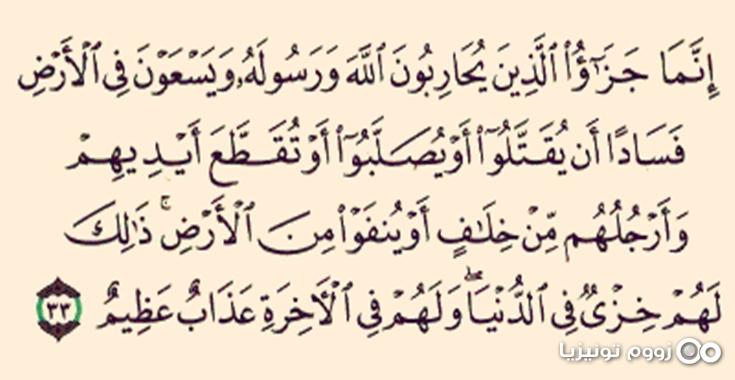 إِنَّمَا جَزَٰٓؤُا۟ ٱلَّذِينَ يُحَارِبُونَ ٱللَّهَ وَرَسُولَهُۥ وَيَسْعَوْنَ فِى ٱلْأَرْضِ
فَسَادًا أَن يُقَتَّلُوٓا۟ أَوْ يُصَلَّبُوٓا۟ أَوْ تُقَطَّعَ أَيْدِيهِمْ
وَأَرْجُلُهُم مِّنْ خِلَٰفٍ أَوْ يُنفَوْا۟ مِنَ ٱلْأَرْضِ ۚ ذَٰلِكَ
لَهُمْ خِزْىٌ فِى ٱلدُّنْيَا ۖ وَلَهُمْ فِى ٱلْءَاخِرَةِ عَذَابٌ عَظِيمٌ ٣٣
زووم تونيزيا